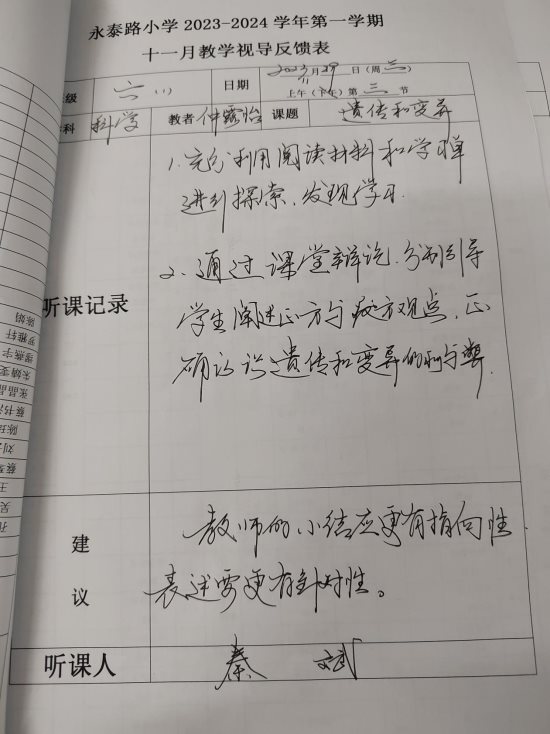 永泰路小学2023-2024学年第一学期
十一月教学视导反馈表
级 六（1） 日期 2023年11月29日（周三）
上午（下午）第三节
科 科学 教者 仲露怡 课题 遗传和变异
听课记录
1.充分利用阅读材料和学习单
进行探索、发现学习.
2.通过课堂辩论,分别引导
学生阐述正方与反方观点,正
确认识遗传和变异的利与弊.
建议
教师的小结应更有指向性
表述要更有针对性。
听课人 秦 斌
陈娟
罗雅轩
张晶晶